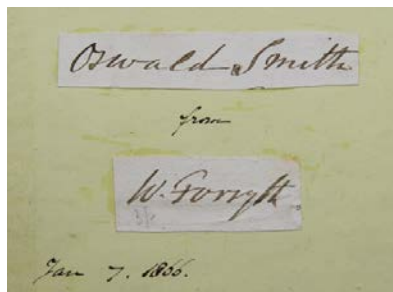 Oswald Smith
from
W. Forsyth.
Jan 7. 1866.